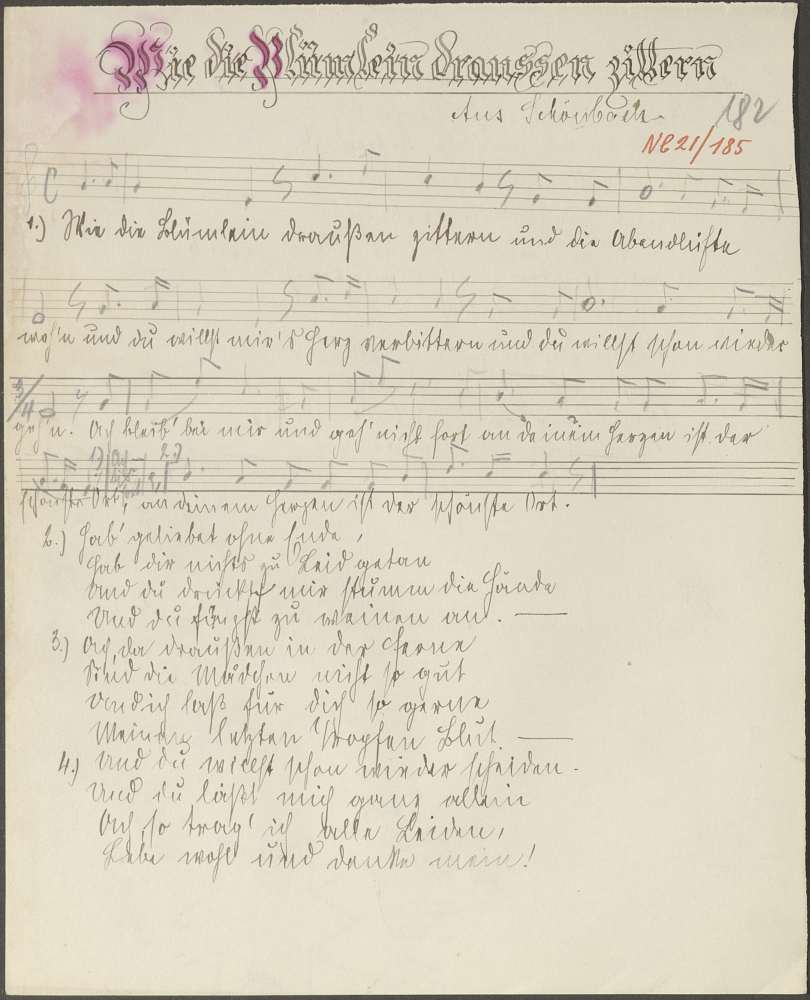 Wie die Blümlein draussen zittern
Aus Schönbach
182
NC 21/185
1.) Wie die Blümlein draußen zittern und die Abendlüfte
weh'n und du willst mir's Herz verbittern und du willst schon wieder
3/4
geh'n. Ach bleib' bei mir und geh' nicht fort an deinem Herzen ist der
1.) 2.)
schönste Ort, an deinem Herzen ist der schönste Ort.
2.) Hab' geliebet ohne Ende,
Hab dir nichts zu Leid getan
Und du drückst mir stumm die Hände
Und du fängst zu weinen an. —
3.) Ach, da draußen in der Ferne
Sind die Mädchen nicht so gut
Und ich laß für dich so gerne
Meinen letzten Tropfen Blut. —
4.) Und du willst schon wieder scheiden.
Und du läßt mich ganz allein
Ach, so trag' ich alle Leiden,
Lebe wohl und denke mein!